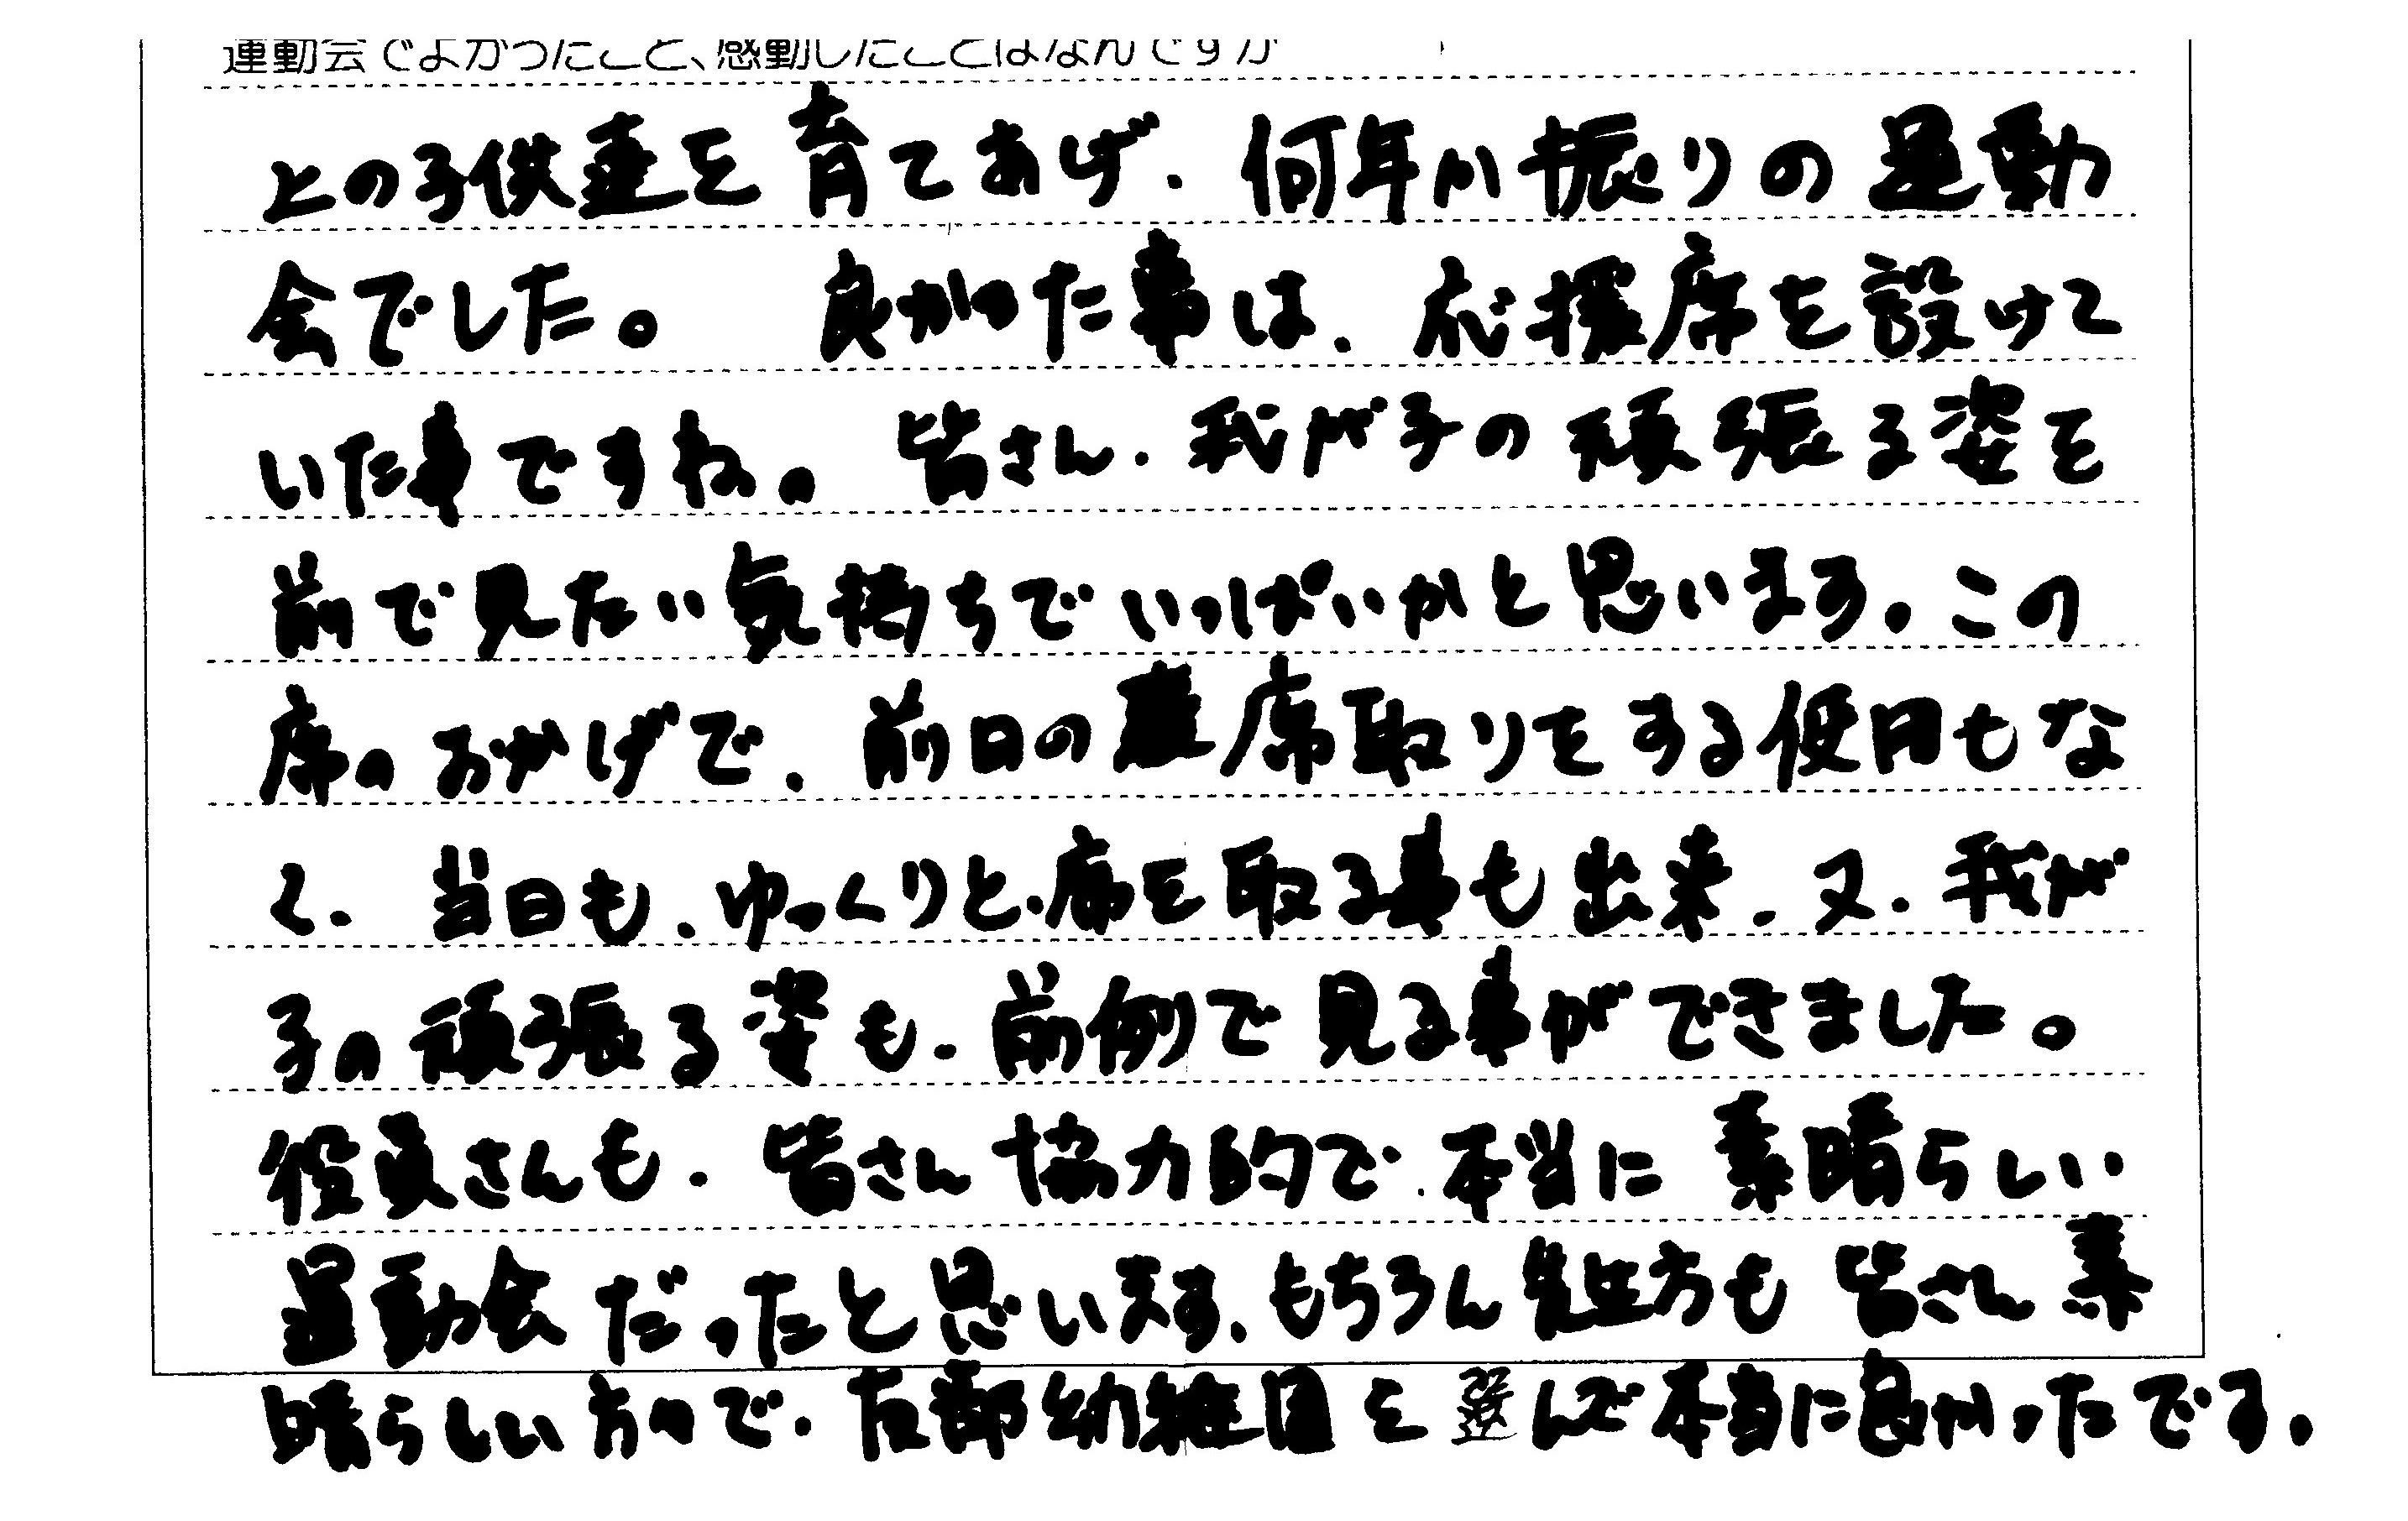 運動会でよかったこと、感動したことはなんですか
上の子供達を育てあげ、何年か振りの運動
会でした。 良かった事は、応援席を設けて
いた事ですね。 皆さん、我が子の頑張る姿を
前で見たい気持ちでいっぱいかと思います。この
席のおかげで、前日の座席取りをする使用もな
く、当日も、ゆっくりと、席を取る事も出来、又、我が
子の頑張る姿も、前側で見る事ができました。
役員さんも、皆さん協力的で、本当に素晴らしい
運動会だったと思います、もちろん先生方も皆さん素
晴らしい方々で、友部幼稚園を選んで本当に良かったです。